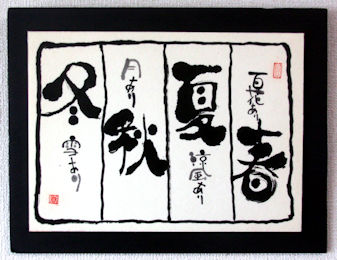 百花あり
春
夏
涼風あり
月あり
秋
冬
雪あり